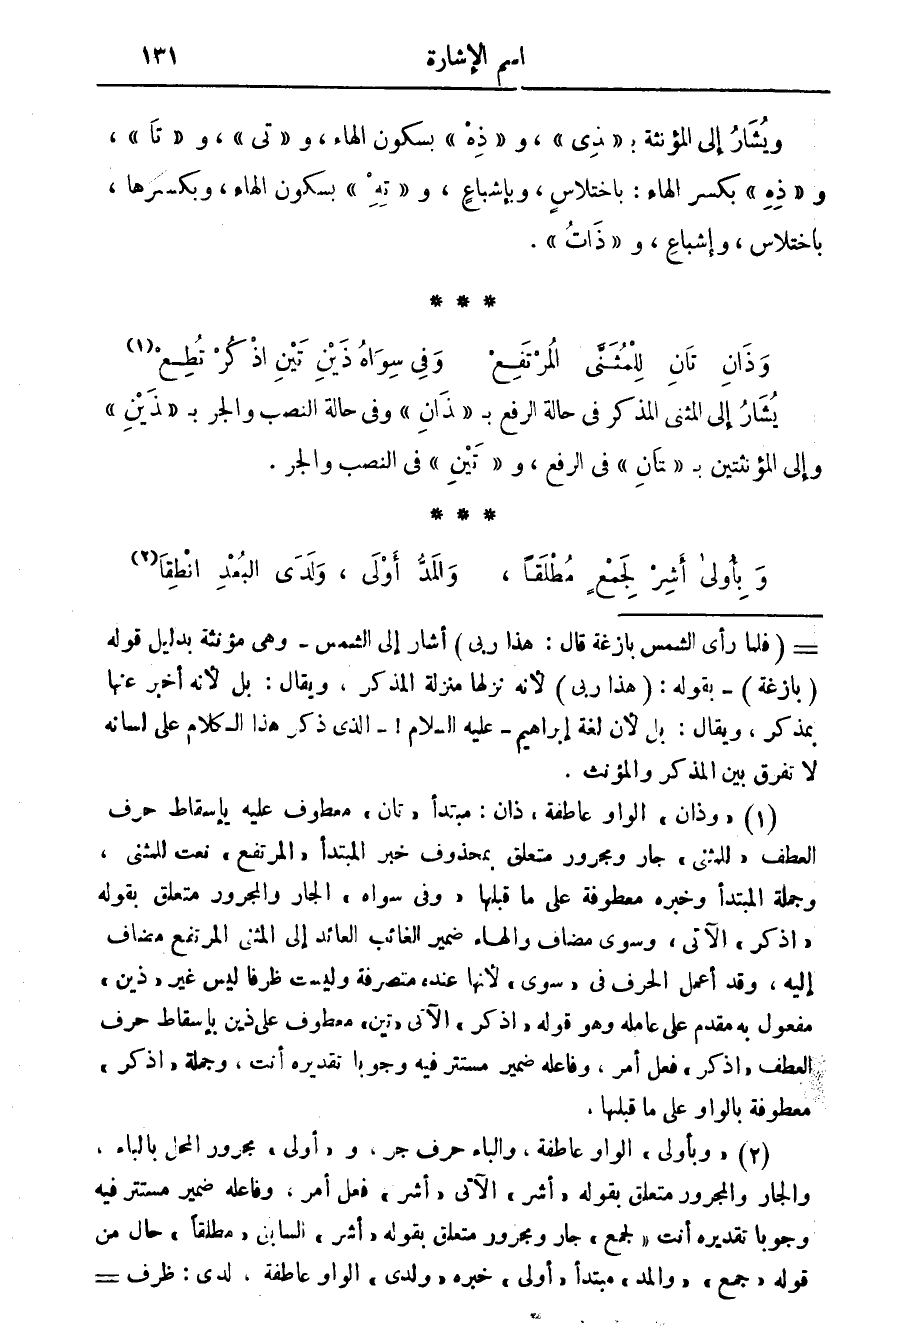 اسم الإشارة ١٣١
ويُشَارُ إلى المؤنثة بـ « ذِى » ، و « ذِهْ » بسكون الهاء ، و « تى » ، و « تَا » ،
و « ذِهِ » بكسر الهاء : باختلاسٍ ، وبإشباعٍ ، و « تِهْ » بسكون الهاء ، وبكسرها ،
باختلاس ، وإشباعِ ، و « ذَاتُ » .
* * *
وَذَانِ تَانِ لِلْمُثَنَّى المُرْتَفِعْ وَفِى سِوَاهُ ذَيْنِ تَيْنِ اذْكُرْ تُطِعْ (١)
يُشَارُ إلى المثنى المذكر فى حالة الرفع بـ « ذَانِ » وفى حالة النصب والجر بـ « ذَيْنِ »
وإلى المؤنثتين بـ « تَانِ » فى الرفع ، و « تَيْنِ » فى النصب والجر .
* * *
وَبِأُولىٰ أَشِرْ لِجَمْعٍ مُطْلَقَاً ، وَالمَدُّ أَوْلَى ، وَلَدَى البُعْدِ انْطِقَا (٢)
= ( فلما رأى الشمس بازغة قال : هذا ربى ) أشار إلى الشمس ـ وهى مؤنثة بدليل قوله
( بازغة ) ـ بقوله : ( هذا ربى ) لأنه نزلها منزلة المذكر ، ويقال : بل لأنه أخبر عنها
بمذكر ، ويقال : بل لأن لغة إبراهيم ـ عليه السلام ! ـ الذى ذكر هذا الكلام على لسانه
لا تفرق بين المذكر والمؤنث .
(١) « وذان » الواو عاطفة ، ذان : مبتدأ « تان » معطوف عليه بإسقاط حرف
العطف « للمثنى » جار ومجرور متعلق بمحذوف خبر المبتدأ « المرتفع » نعت للمثنى ،
وجملة المبتدأ وخبره معطوفة على ما قبلها « وفى سواه » الجار والمجرور متعلق بقوله
« اذكر » الآتى ، وسوى مضاف والهاء ضمير الغائب العائد إلى المثنى المرتفع مضاف
إليه ، وقد أعمل الحرف فى « سوى » لأنها عنده متصرفة وليست ظرفا ليس غير « ذين »
مفعول به مقدم على عامله وهو قوله « اذكر » الآتى « تين » معطوف على ذين بإسقاط حرف
العطف « اذكر » فعل أمر ، وفاعله ضمير مستتر فيه وجوبا تقديره أنت ، وجملة « اذكر »
معطوفة بالواو على ما قبلها .
(٢) « وبأولى » الواو عاطفة ، والباء حرف جر ، و « أولى » مجرور المحل بالباء ،
والجار والمجرور متعلق بقوله « أشر » الآتى « أشر » فعل أمر ، وفاعله ضمير مستتر فيه
وجوبا تقديره أنت « لجمع » جار ومجرور متعلق بقوله « أشر » السابق « مطلقاً » حال من
قوله « جمع » « والمد » مبتدأ « أولى » خبره « ولدى » الواو عاطفة ، لدى : ظرف =